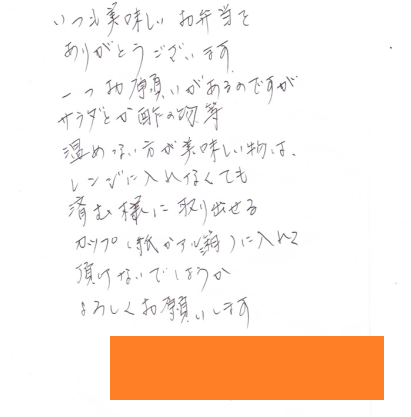 いつも美味しいお弁当を
ありがとうございます
一つお願いがあるのですが
サラダとか酢の物等
温めない方が美味しい物は、
レンジに入れなくても
済む様に取り出せる
カップ(紙かアルミ箔)に入れて
頂けないでしょうか
よろしくお願いします